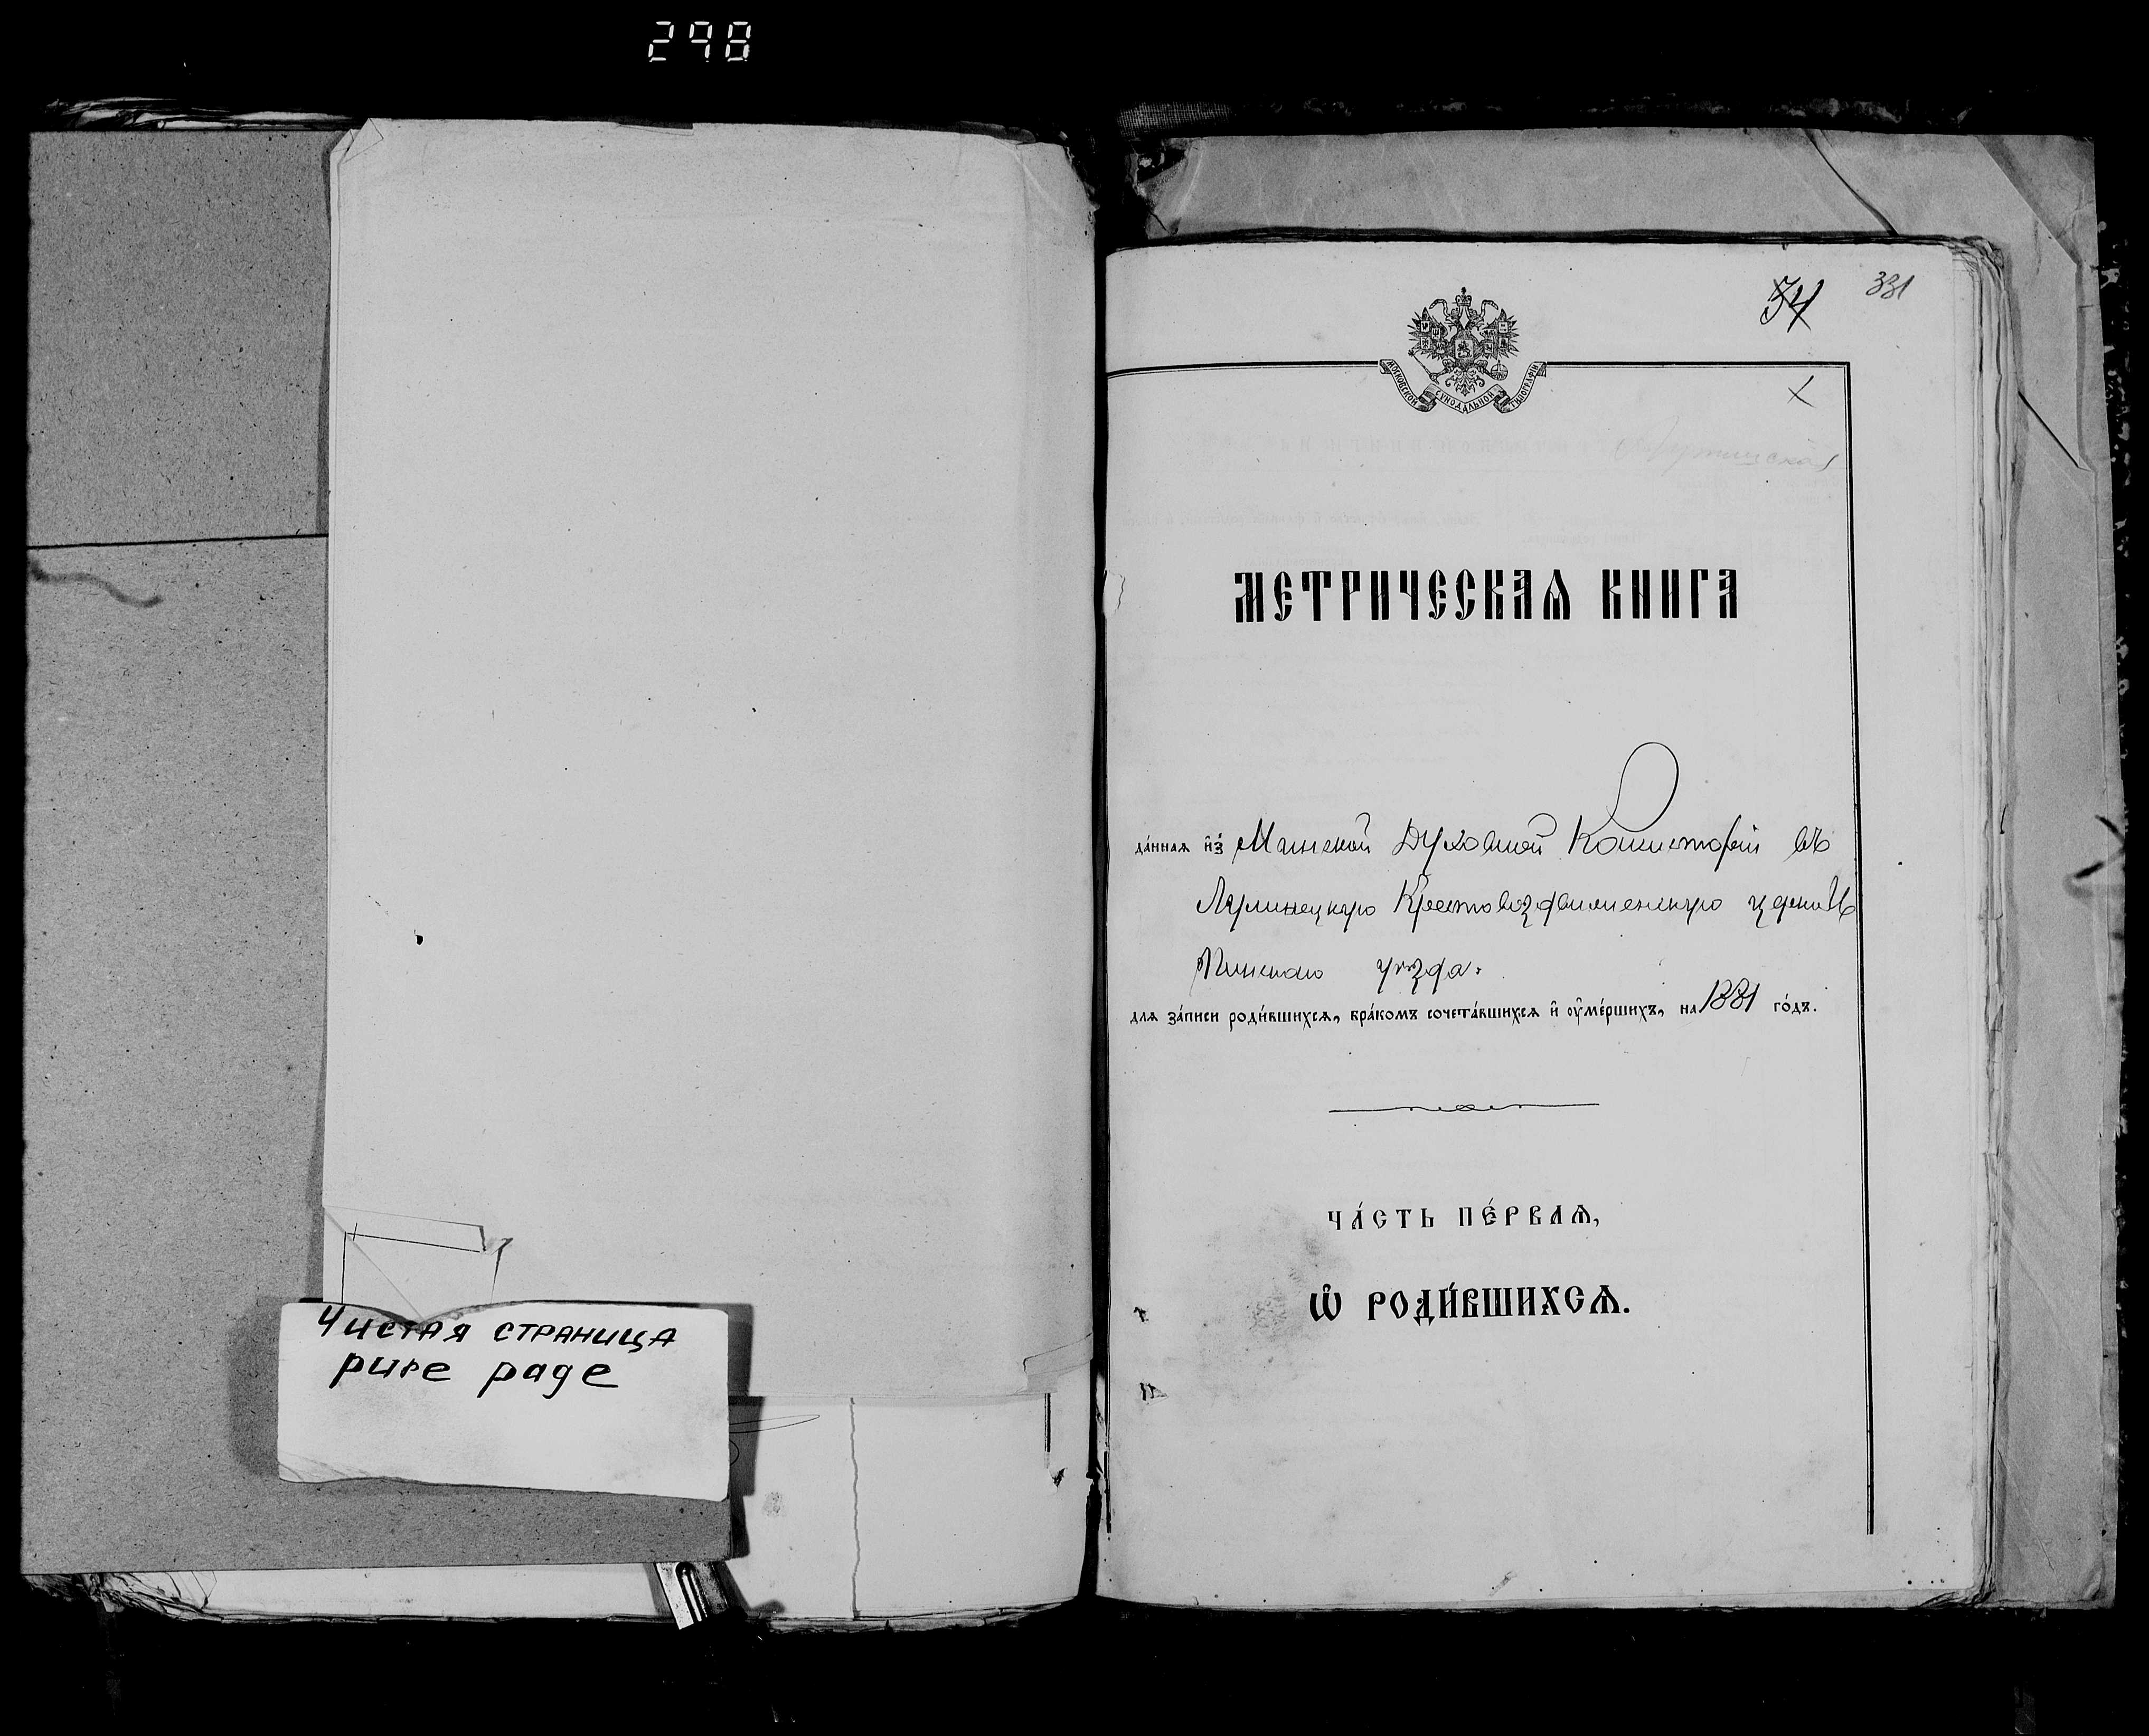 298
Чистая страница
pure page
331
34
МОСКОВСКОЙ СѴНОДАЛЬНОЙ ТИПОГРАФІИ
МЕТРИЧЕСКАѦ КНИГА
да́ннаѧ и҆з̾ Минской Духовной Консисторіи въ
Лулинецкую Крестовоздвиженскую церковь
Пинскаго уѣзда.
длѧ за́писи роди́вшихсѧ, бра́комъ сочета́вшихсѧ и҆ ᲂу҆ме́ршихъ, на 1881 го́дъ.
ЧА́СТЬ ПЕ́РВАѦ,
Ѡ҆ РОДИ́ВШИХСѦ.